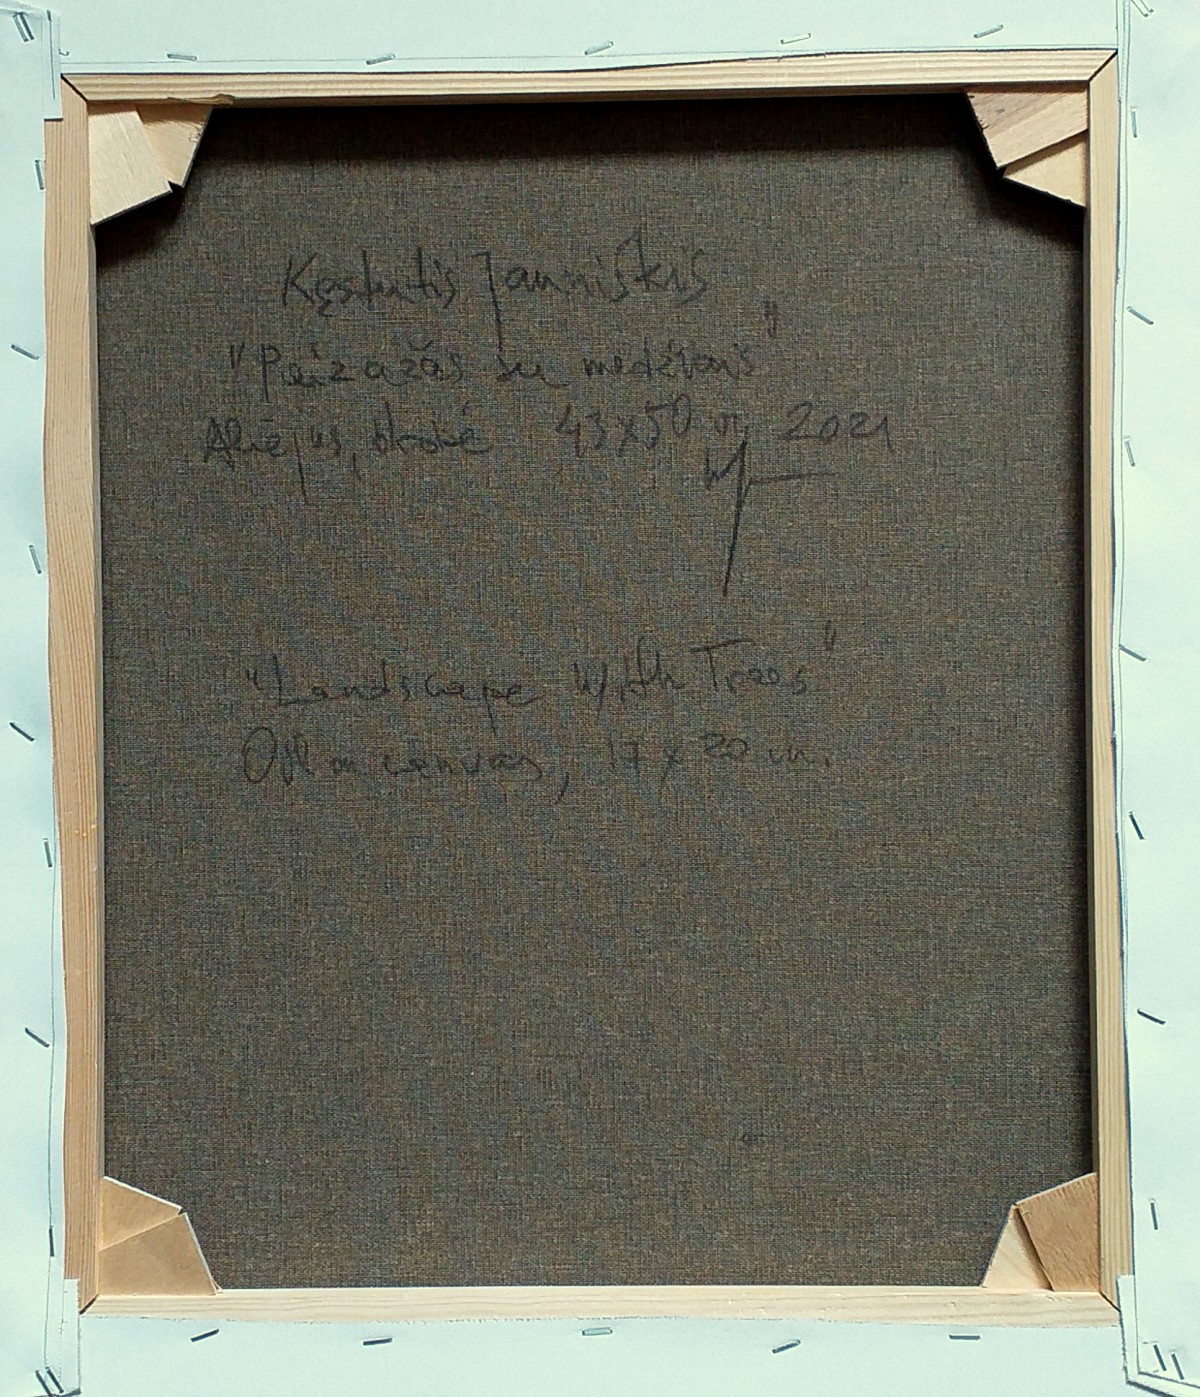 Kęstutis Jauniškis
"Peizažas su medžiais"
Aliejus, drobė 43x50 cm, 2021
"Landscape With Trees"
Oil on canvas, 17 x 20 in.